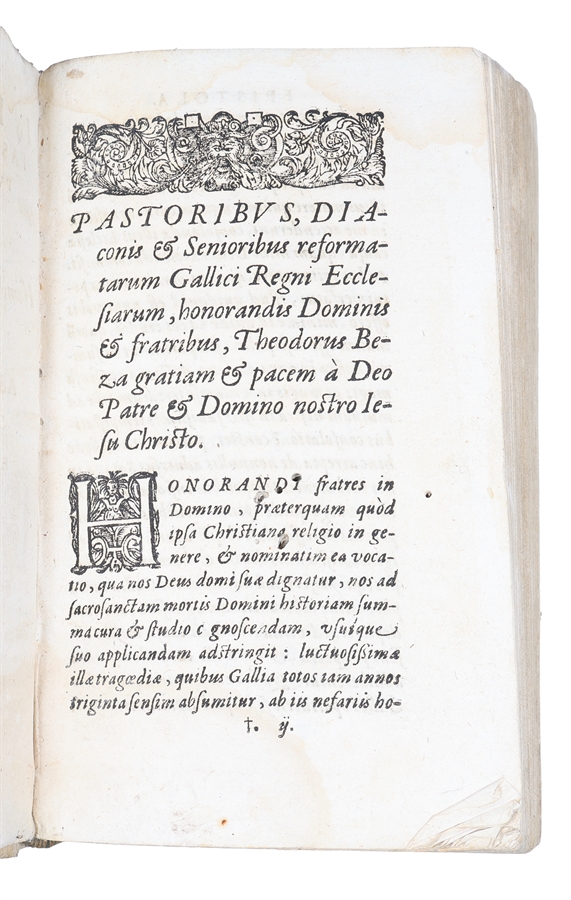 PASTORIBVS, DIA-
conis & Senioribus reforma-
tarum Gallici Regni Eccle-
ſiarum, honorandis Dominis
& fratribus, Theodorus Be-
za gratiam & pacem à Deo
Patre & Domino nostro Ie-
ſu Christo.
HONORANDI fratres in
Domino, præterquam quòd
ipſa Christiana religio in ge-
nere, & nominatim ea voca-
tio, qua nos Deus domi ſuæ dignatur, nos ad
ſacroſanctam mortis Domini historiam ſum-
ma cura & studio c gnoſcendam, vſuique
ſuo applicandam adstringit: luctuoſißimæ
illæ tragœdiæ, quibus Gallia totos iam annos
triginta ſenſim abſumitur, ab iis nefariis ho-
†. ij.